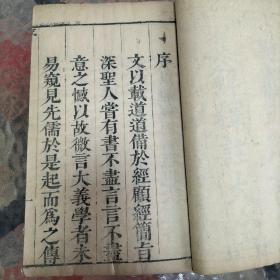 序
文以載道道備於經顧經簡言
深聖人嘗有書不盡言言不盡
意之憾以故微言大義學者未
易窺見先儒於是起而爲之傳